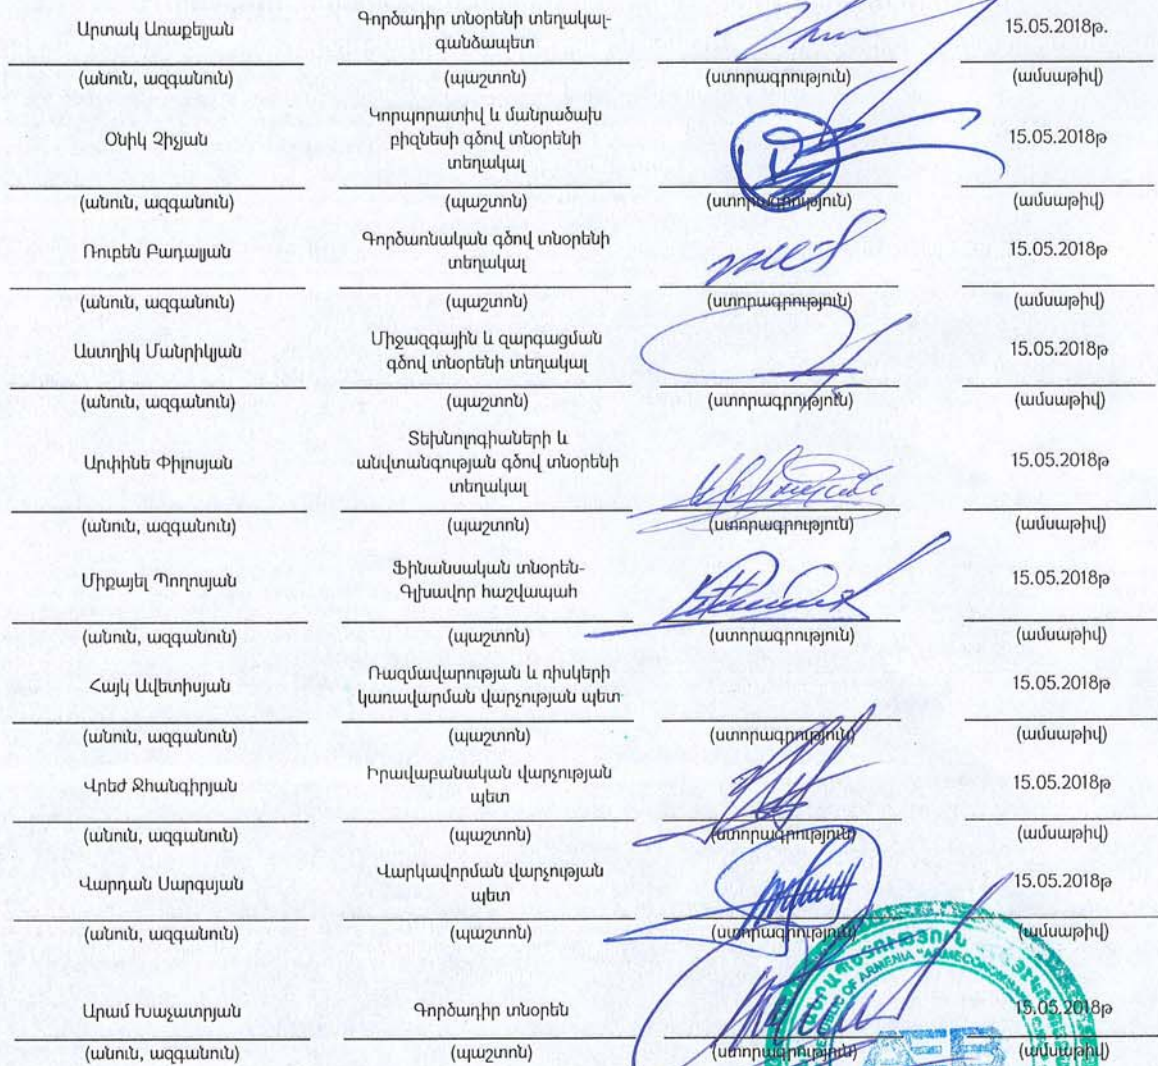 Արտակ Առաքելյան
Գործադիր տնօրենի տեղակալ-
գանձապետ
15.05.2018թ.
(անուն, ազգանուն) (պաշտոն) (ստորագրություն) (ամսաթիվ)
Օնիկ Չիչյան
Կորպորատիվ և մանրածախ
բիզնեսի գծով տնօրենի
տեղակալ
15.05.2018թ
(անուն, ազգանուն) (պաշտոն) (ստորագրություն) (ամսաթիվ)
Ռուբեն Բադալյան
Գործառնական գծով տնօրենի
տեղակալ
15.05.2018թ
(անուն, ազգանուն) (պաշտոն) (ստորագրություն) (ամսաթիվ)
Աստղիկ Մանրիկյան
Միջազգային և զարգացման
գծով տնօրենի տեղակալ
15.05.2018թ
(անուն, ազգանուն) (պաշտոն) (ստորագրություն) (ամսաթիվ)
Արփինե Փիլոսյան
Տեխնոլոգիաների և
անվտանգության գծով տնօրենի
տեղակալ
15.05.2018թ
(անուն, ազգանուն) (պաշտոն) (ստորագրություն) (ամսաթիվ)
Միքայել Պողոսյան
Ֆինանսական տնօրեն-
Գլխավոր հաշվապահ
15.05.2018թ
(անուն, ազգանուն) (պաշտոն) (ստորագրություն) (ամսաթիվ)
Հայկ Ավետիսյան
Ռազմավարության և ռիսկերի
կառավարման վարչության պետ
15.05.2018թ
(անուն, ազգանուն) (պաշտոն) (ստորագրություն) (ամսաթիվ)
Վրեժ Ջհանգիրյան
Իրավաբանական վարչության
պետ
15.05.2018թ
(անուն, ազգանուն) (պաշտոն) (ստորագրություն) (ամսաթիվ)
Վարդան Սարգսյան
Վարկավորման վարչության
պետ
15.05.2018թ
(անուն, ազգանուն) (պաշտոն) (ստորագրություն) (ամսաթիվ)
Արամ Խաչատրյան
Գործադիր տնօրեն
15.05.2018թ
(անուն, ազգանուն) (պաշտոն) (ստորագրություն) (ամսաթիվ)
OF ARMENIA
AEB